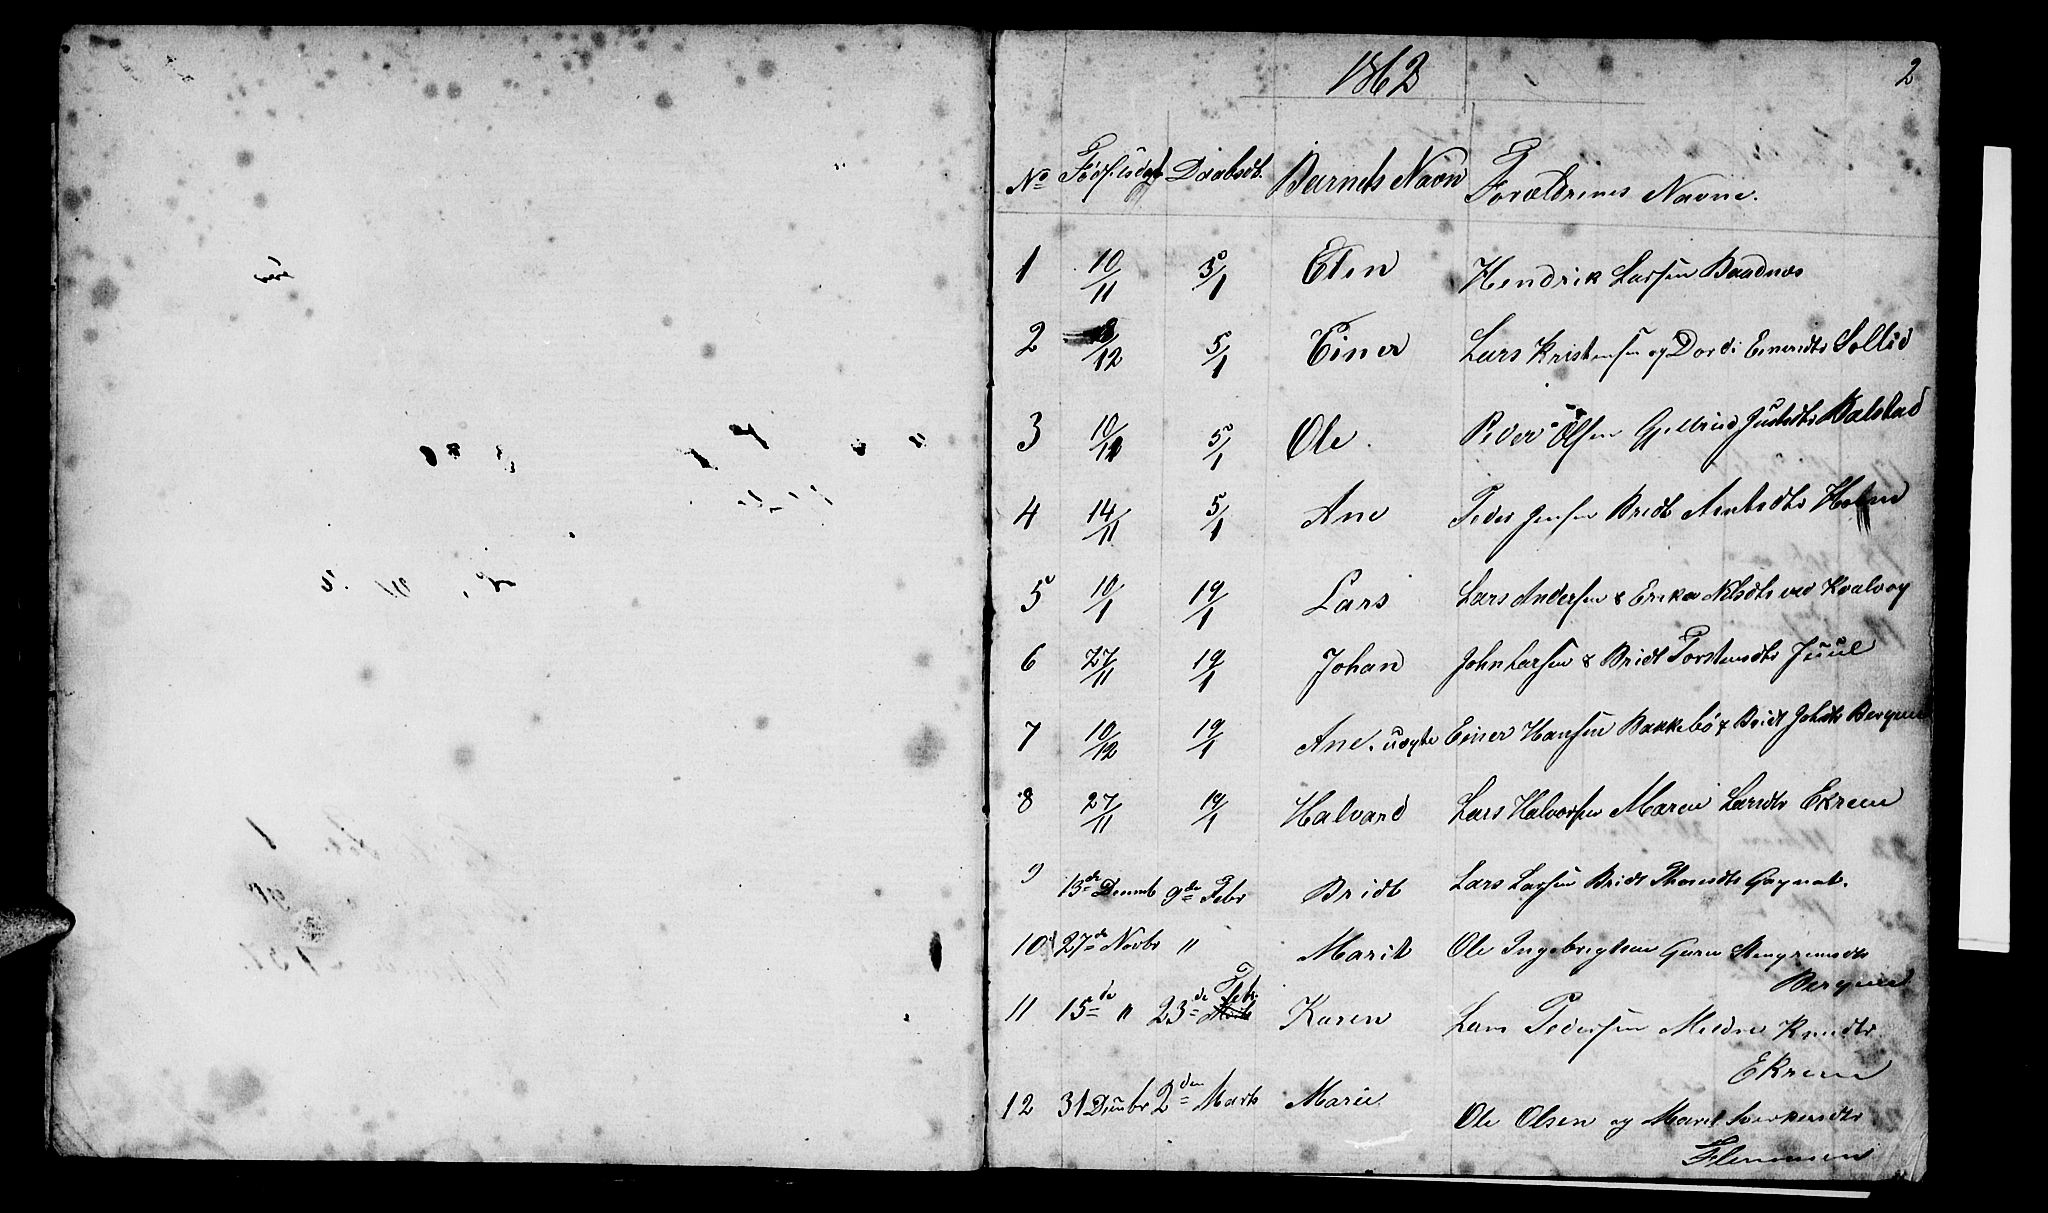 1862 2
No Fødselsdag Daabsdt. Barnets Navn Forældrenes Navne.
1 10/11 5/1 Elen Hendrik Larsen Baadnæs
2 /12 5/1 Einer Lars Kristensen og Dordi Einersdtr Sollid
3 10/11 5/1 Ole. Peder Olsen Gjertrud Balstad
4 14/11 5/1 Ane Peder Jensen Bridt Holm
5 10/1 19/1 Lars Lars Andersen & Erika Nilsdtr ved Kvalvog
6 27/11 19/1 Johan John Larsen & Bridt Torstensdtr Juul
7 10/12 19/1 Ane. uægte Einer Hansen Bakkebø & Bridt Johsdtr Bergem
8 27/11 19/1 Halvard Lars Halvorsen Maren Larsdtr Ekrem
9 13de Decemb 9de Febr Bridt Lars Larsen Bridt Gagnat.
10 27de Novbr " Marit Ole Ingebrigtsen Guru Stengrimsdtr
Bergem
11 15de " 23de Febr. Karen Lars Pedersen Mildri Knudtr
Ekrem
12 31 Decembr 2den Marts Marie. Ole Olsen og Marit Sverkersdtr
Flemmen